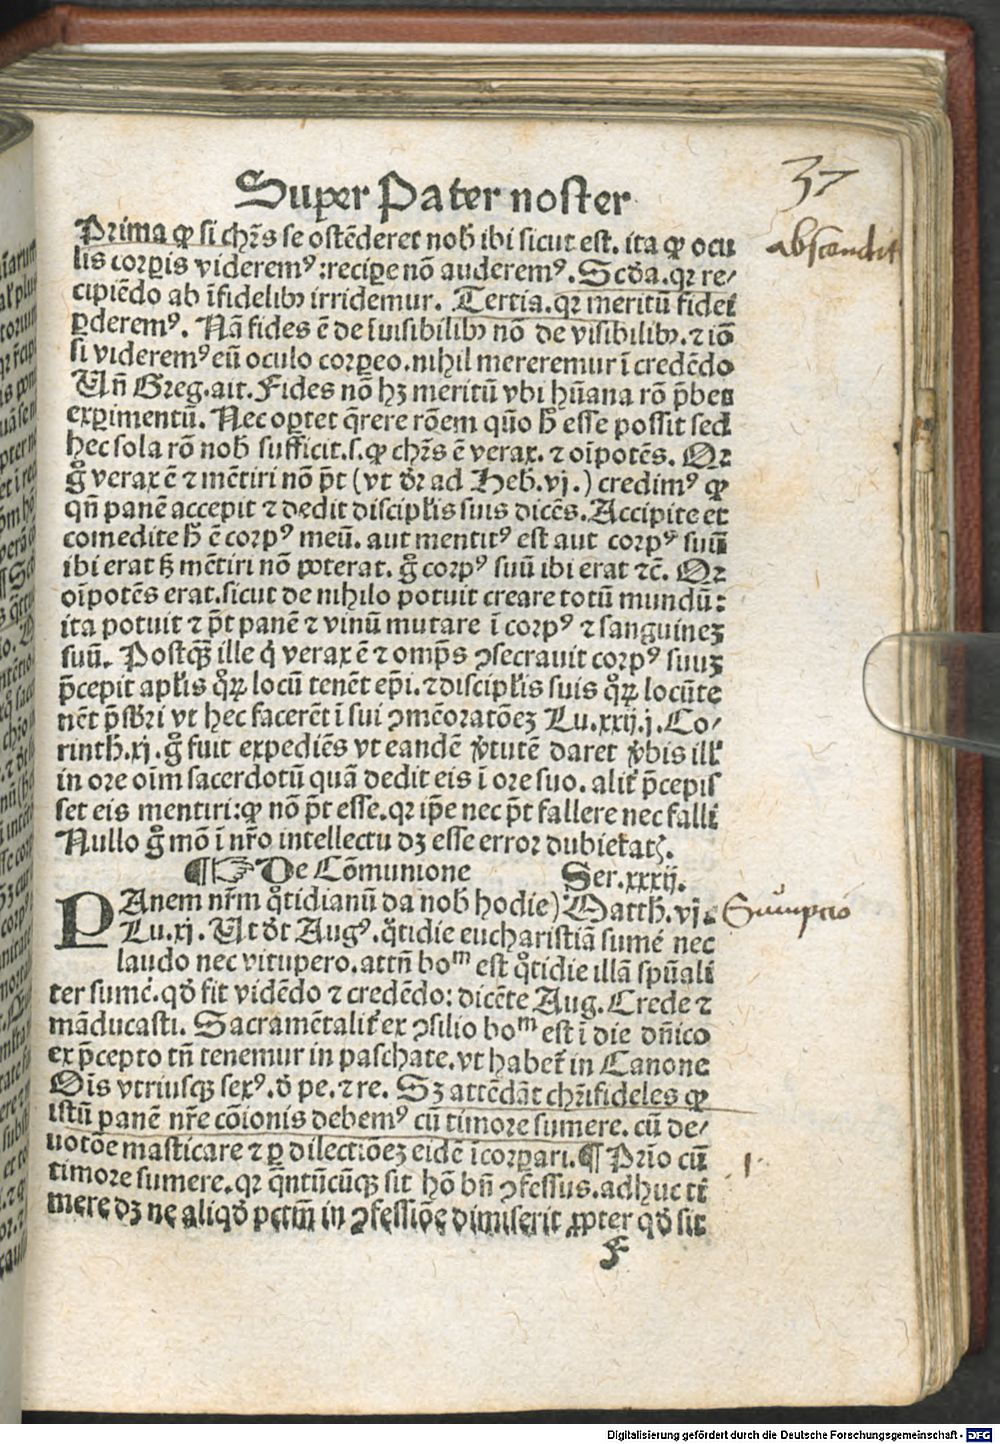 37
Super Pater noster
Prima ꝙ si chr̄s se ostēderet nob̄ ibi sicut est. ita ꝙ ocu
abscondit
lis corꝑis viderem⁹: reciꝑe nō auderem⁹. Scd̄a. qꝛ re⸗
cipiēdo ab īfidelibꝫ irridemur. Tertia. qꝛ meritū fidei
ꝑderem⁹. Nā fides ē de īuisibilibꝫ nō de visibilibꝫ. ⁊ iō
si viderem⁹ eū oculo corꝑeo. nihil mereremur ī credēdo
Vn̄ Greg. ait. Fides nō hꝫ meritū vbi hūana rō p̄bet
exꝑimentū. Nec oꝑtet q̄rere rōem quō h̄ esse possit sed
hec sola rō nob̄ sufficit. s. ꝙ chr̄s ē verax. ⁊ oīpotēs. Qꝛ
g̊ verax ē ⁊ mētiri nō p̄t (vt dr̄ ad Heb̄. vj.) credim⁹ ꝙ
qn̄ panē accepit ⁊ dedit discipl̄is suis dicēs. Accipite et
comedite h̄ ē corp⁹ meū. aut mentit⁹ est aut corp⁹ suū
ibi erat sꝫ mētiri nō poterat. g̊ corp⁹ suū ibi erat ⁊c̄. Qꝛ
oīpotēs erat. sicut de nihilo potuit creare totū mundū:
ita potuit ⁊ p̄t panē ⁊ vinū mutare ī corp⁹ ⁊ sanguineꝫ
suū. Postq̄ꝫ ille q̇ verax ē ⁊ omp̄s ꝯsecrauit corp⁹ suuꝫ
p̄cepit apl̄is qͦꝝ locū tenēt ep̄i. ⁊ discipl̄is suis qͦꝝ locū te
nēt p̄sb̄ri vt hec facerēt ī sui ꝯmēoratōeꝫ Lu. xxij. j. Co⸗
rinth̄. xj. g̊ fuit expediēs vt eandē v̓tutē daret v̓bis ill̓
in ore oīm sacerdotū quā dedit eis ī ore suo. alit̓ p̄cepis
set eis mentiri: ꝙ nō p̄t esse. qꝛ ip̄e nec p̄t fallere nec falli
Nullo g̊ mō ī nr̄o intellectu dꝫ esse error dubietat̓.
¶☞ De Cōmunione Ser. xxxij.
PAnem nr̄m qͦtidianū da nob̄ hodie) Matth̄. vj.
Sumpcio
Lu. xj. Vt dr̄t Aug⁹. qͦtidie eucharistiā sumē nec
laudo nec vitupero. attn̄ boᵐ est qͦtidie illā spūali
ter sumē. qd̄ fit vidēdo ⁊ credēdo: dicēte Aug. Crede ⁊
māducasti. Sacramētalit̓ ex ꝯsilio boᵐ est ī die dn̄ico
ex p̄cepto tn̄ tenemur in paschate. vt habet̓ in Canone
Oīs vtriusqꝫ sex⁹. d̓ pe. ⁊ re. Sꝫ attēdāt chr̄ifideles ꝙ
istū panē nr̄e cōionis debem⁹ cū timore sumere. cū de⸗
uotōe masticare ⁊ ꝑ dilectiōeꝫ eidē īcorꝑari. ¶ Prīo cū
timore sumere. qꝛ q̄ntūcūqꝫ sit hō bn̄ ꝯfessus. adhuc ti
1.
mere dꝫ ne aliqd̄ pctm̄ in ꝯfessiōe dimiserit ꝓpter qd̄ sit
F
Digitalisierung gefördert durch die Deutsche Forschungsgemeinschaft - DFG